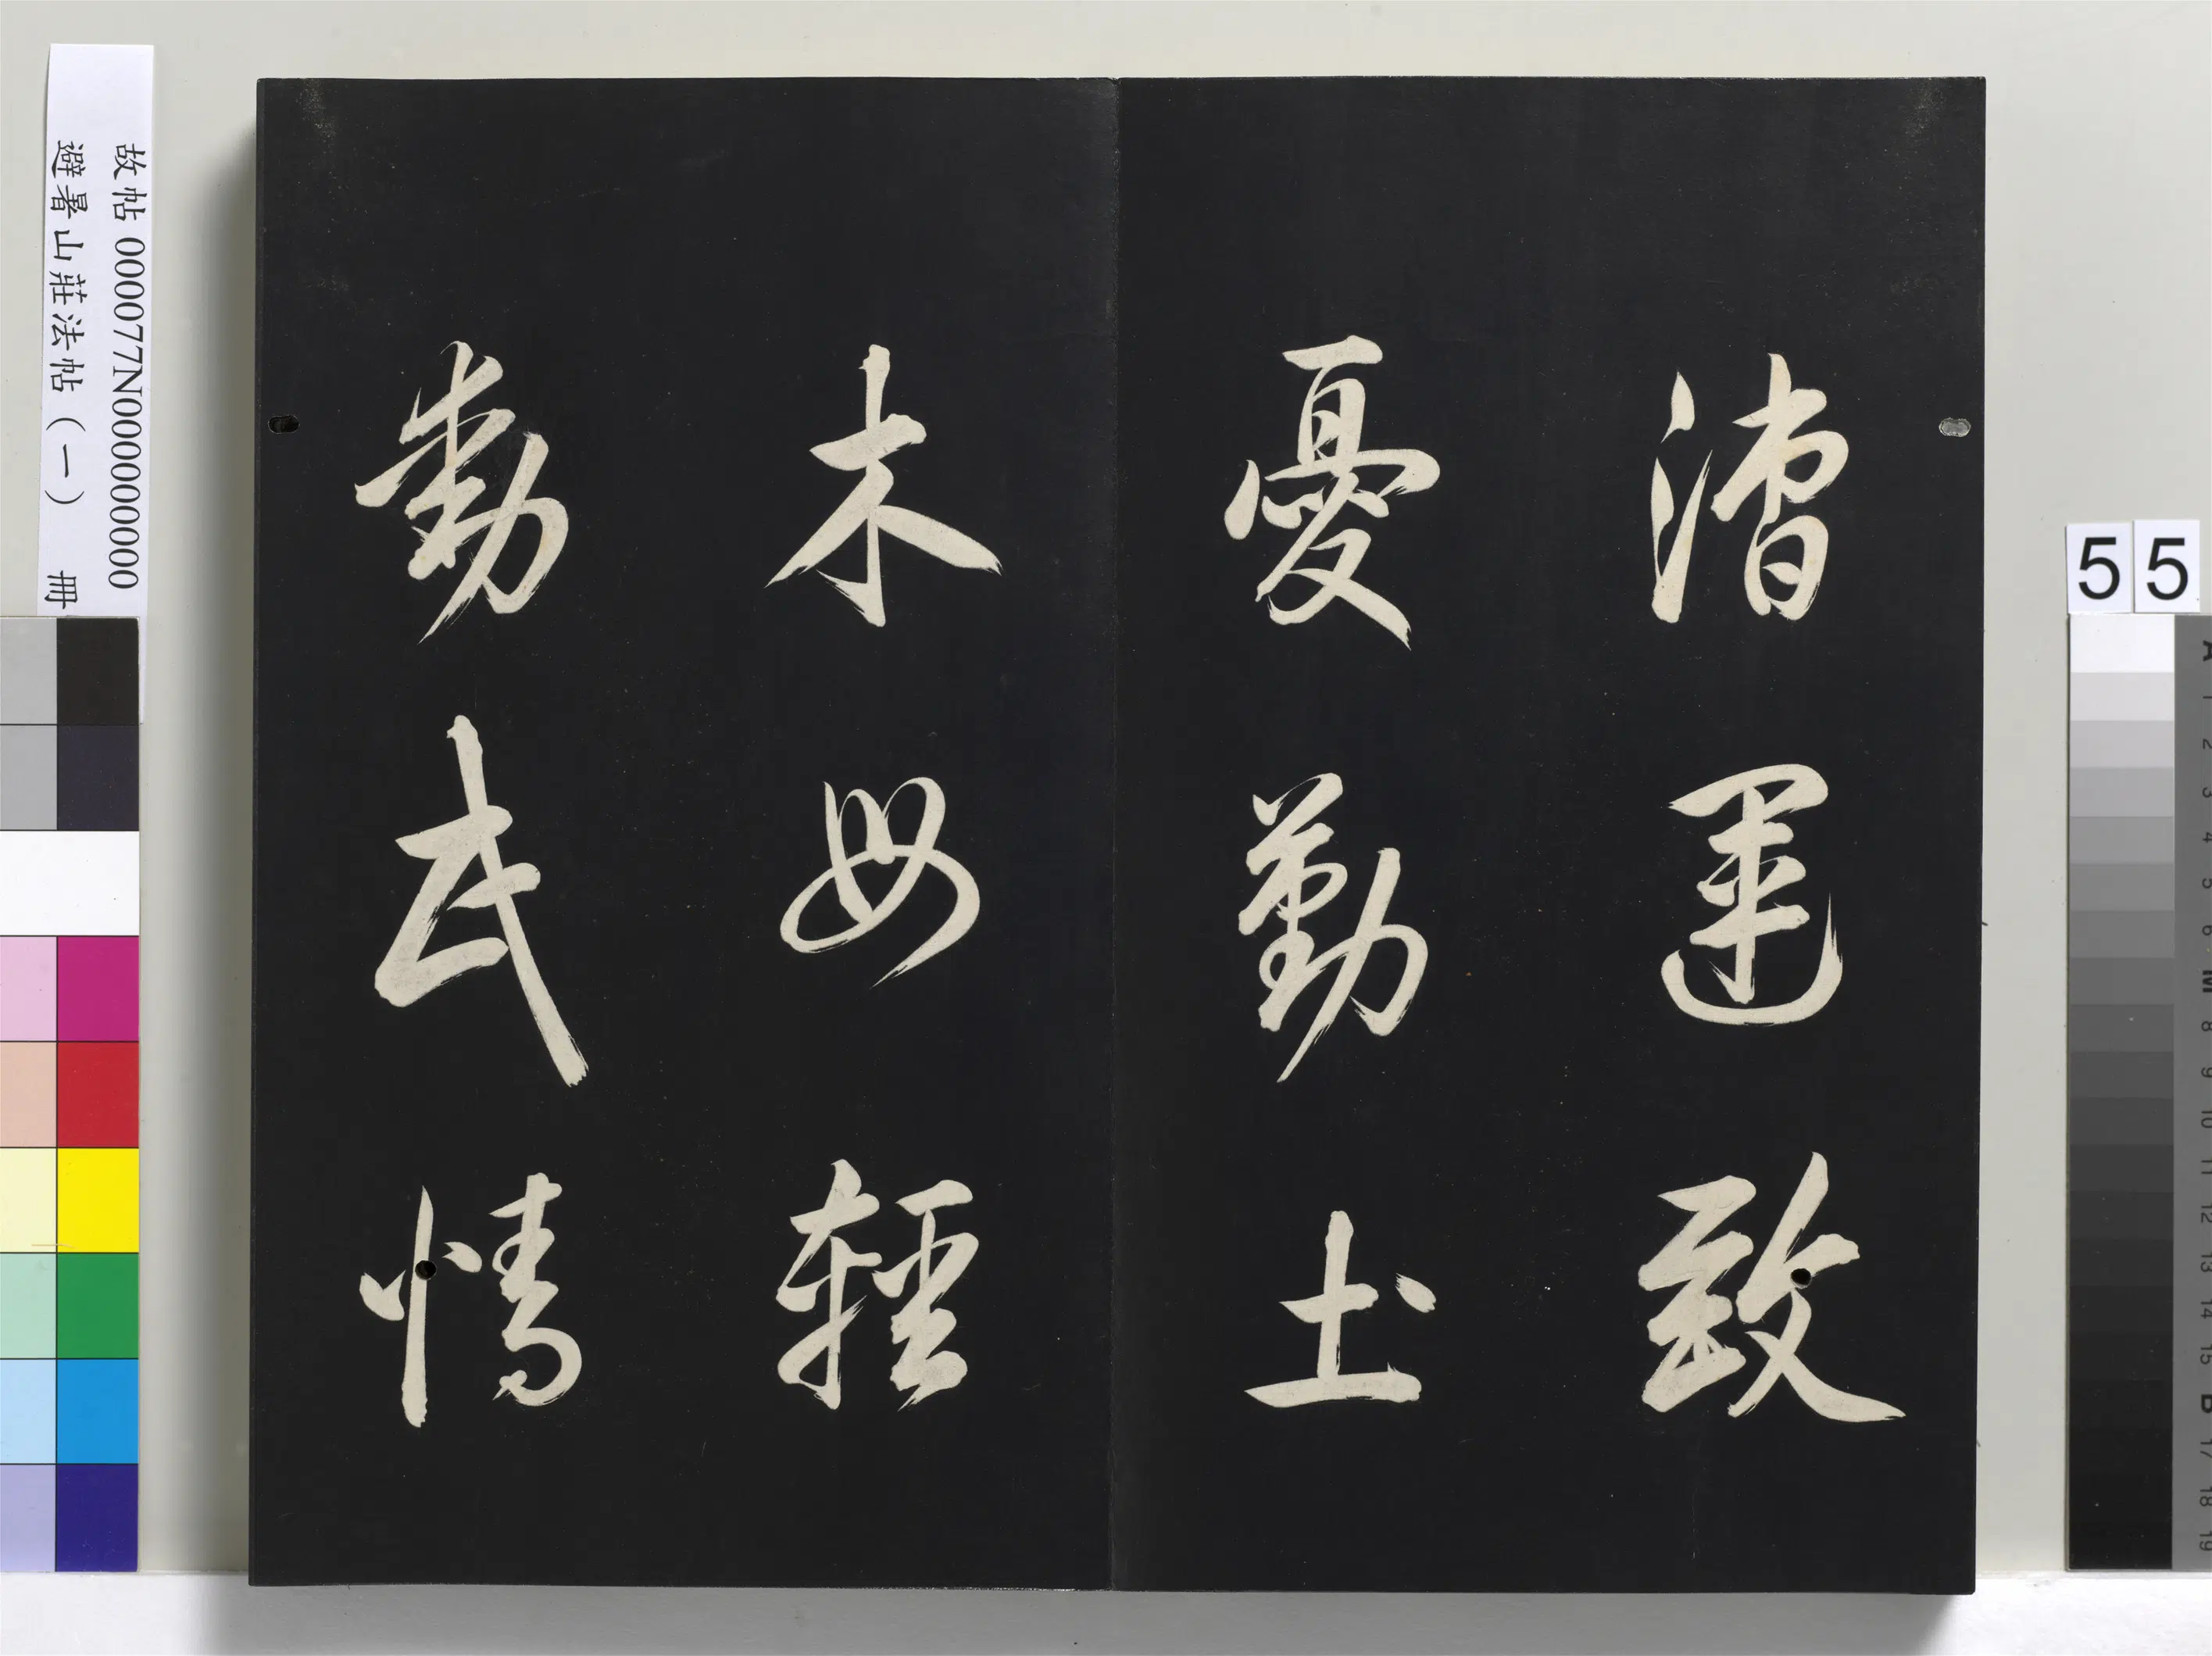 漕運致
憂勤土
木毋輕
動民情
故帖 000077N000000000
避暑山莊法帖（一） 冊
55
A 1 2 3 4 5 6 M 8 9 10 11 12 13 14 15 B 17 18 19